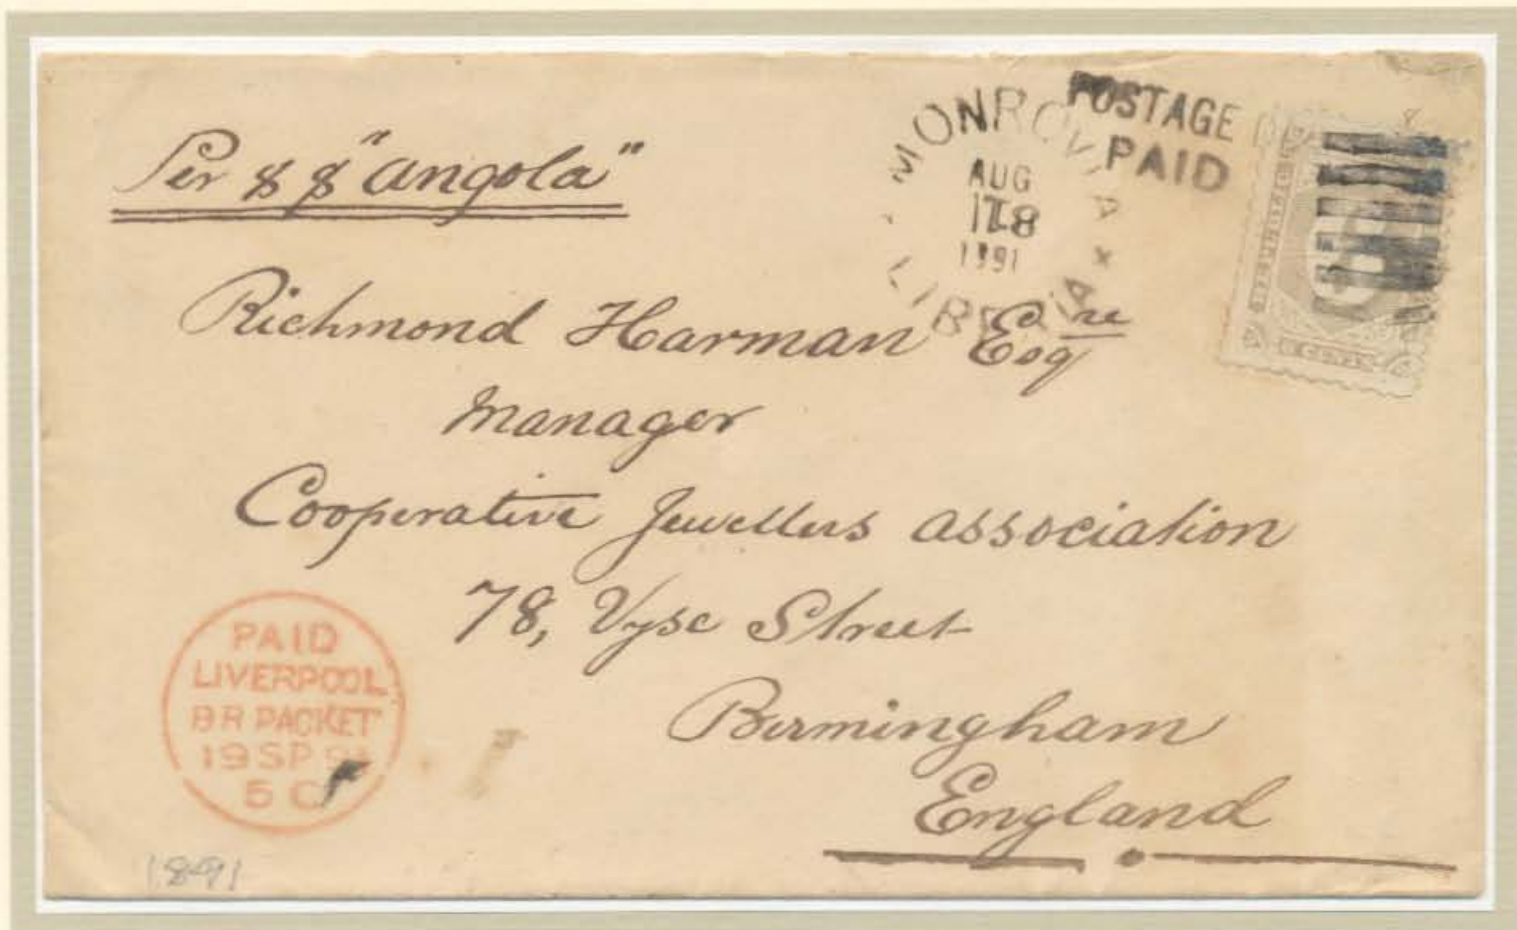 Per S S "Angola"
MONROVIA
LIBERIA
AUG
1891
POSTAGE
PAID
8
Richmond Harman Esqre
Manager
Cooperative Jewellers Association
78, Vyse Street
Birmingham
England
PAID
LIVERPOOL
BR PACKET
19 SP 91
5 C
1891